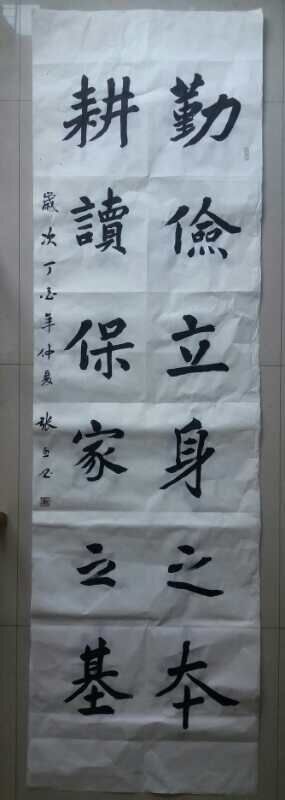 勤儉立身之本
耕讀保家之基
歲次丁酉年仲夏 張